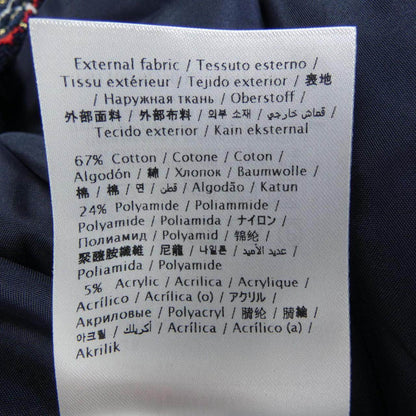 External fabric / Tessuto esterno /
Tissu extérieur / Tejido exterior / 表地
/ Наружная ткань / Oberstoff /
外部面料 / 外部布料 / 외부 소재 / قماش خارجي /
Tecido exterior / Kain eksternal
67% Cotton / Cotone / Coton /
Algodón / 綿 / Хлопок / Baumwolle /
棉 / 棉 / 면 / قطن / Algodão / Katun
24% Polyamide / Poliammide /
Polyamide / Poliamida / ナイロン /
Полиамид / Polyamid / 锦纶 /
聚醯胺纖維 / 尼龍 / 나일론 / عديد الأميد /
Poliamida / Polyamide
5% Acrylic / Acrilica / Acrylique /
Acrílico / Acrílica (o) / アクリル /
Акриловые / Polyacryl / 腈纶 / 腈綸 /
아크릴 / أكريلك / Acrílica / Acrílico (a) /
Akrilik